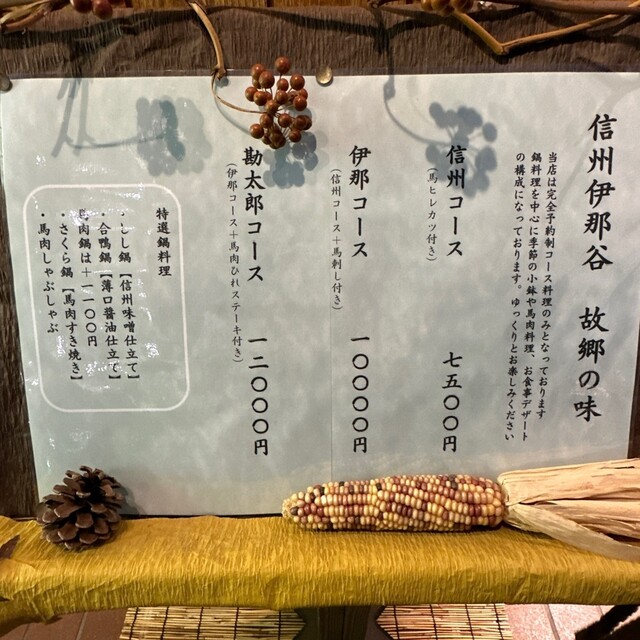 信州伊那谷 故郷の味
当店は完全予約制コース料理のみとなっております
鍋料理を中心に季節の小鉢や馬肉料理、お食事デザート
の構成になっております。ゆっくりとお楽しみください
信州コース 七五〇〇円
(馬ヒレカツ付き)
伊那コース 一〇〇〇〇円
(信州コース+馬刺し付き)
勘太郎コース 一二〇〇〇円
(伊那コース+馬肉ひれステーキ付き)
特選鍋料理
・しし鍋【信州味噌仕立て】
・合鴨鍋【薄口醤油仕立て】
馬肉鍋は+一一〇〇円
・さくら鍋【馬肉すき焼き】
・馬肉しゃぶしゃぶ